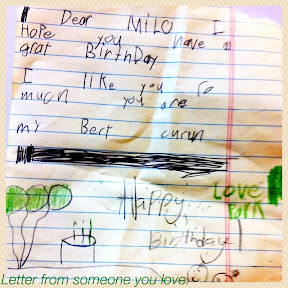 Dear MiLO I
Hope you have a
grat BirthDay
I like you so
much you are
my Bert curun
Happy
Birthday
LOVE
Letter from someone you love.